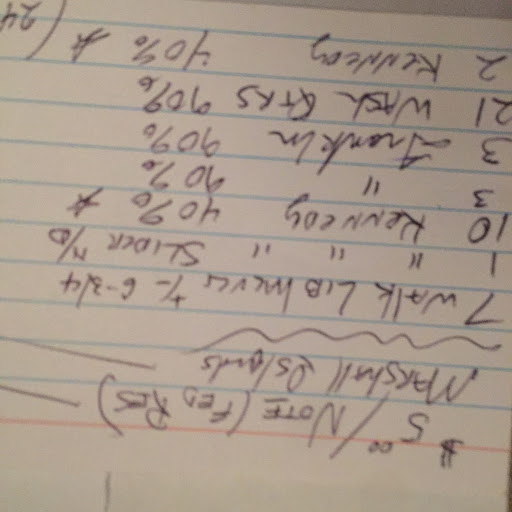 $5.00 / NOTE (FED RES)
MARShall Islands
7 WAlk LIB
1 " " " SLIDER N/D
10 KENNEDY 40% *
3 " 90%
3 Franklin 90%
21 WASH QTRS 90%
2 KENNEDY 40% *
(24